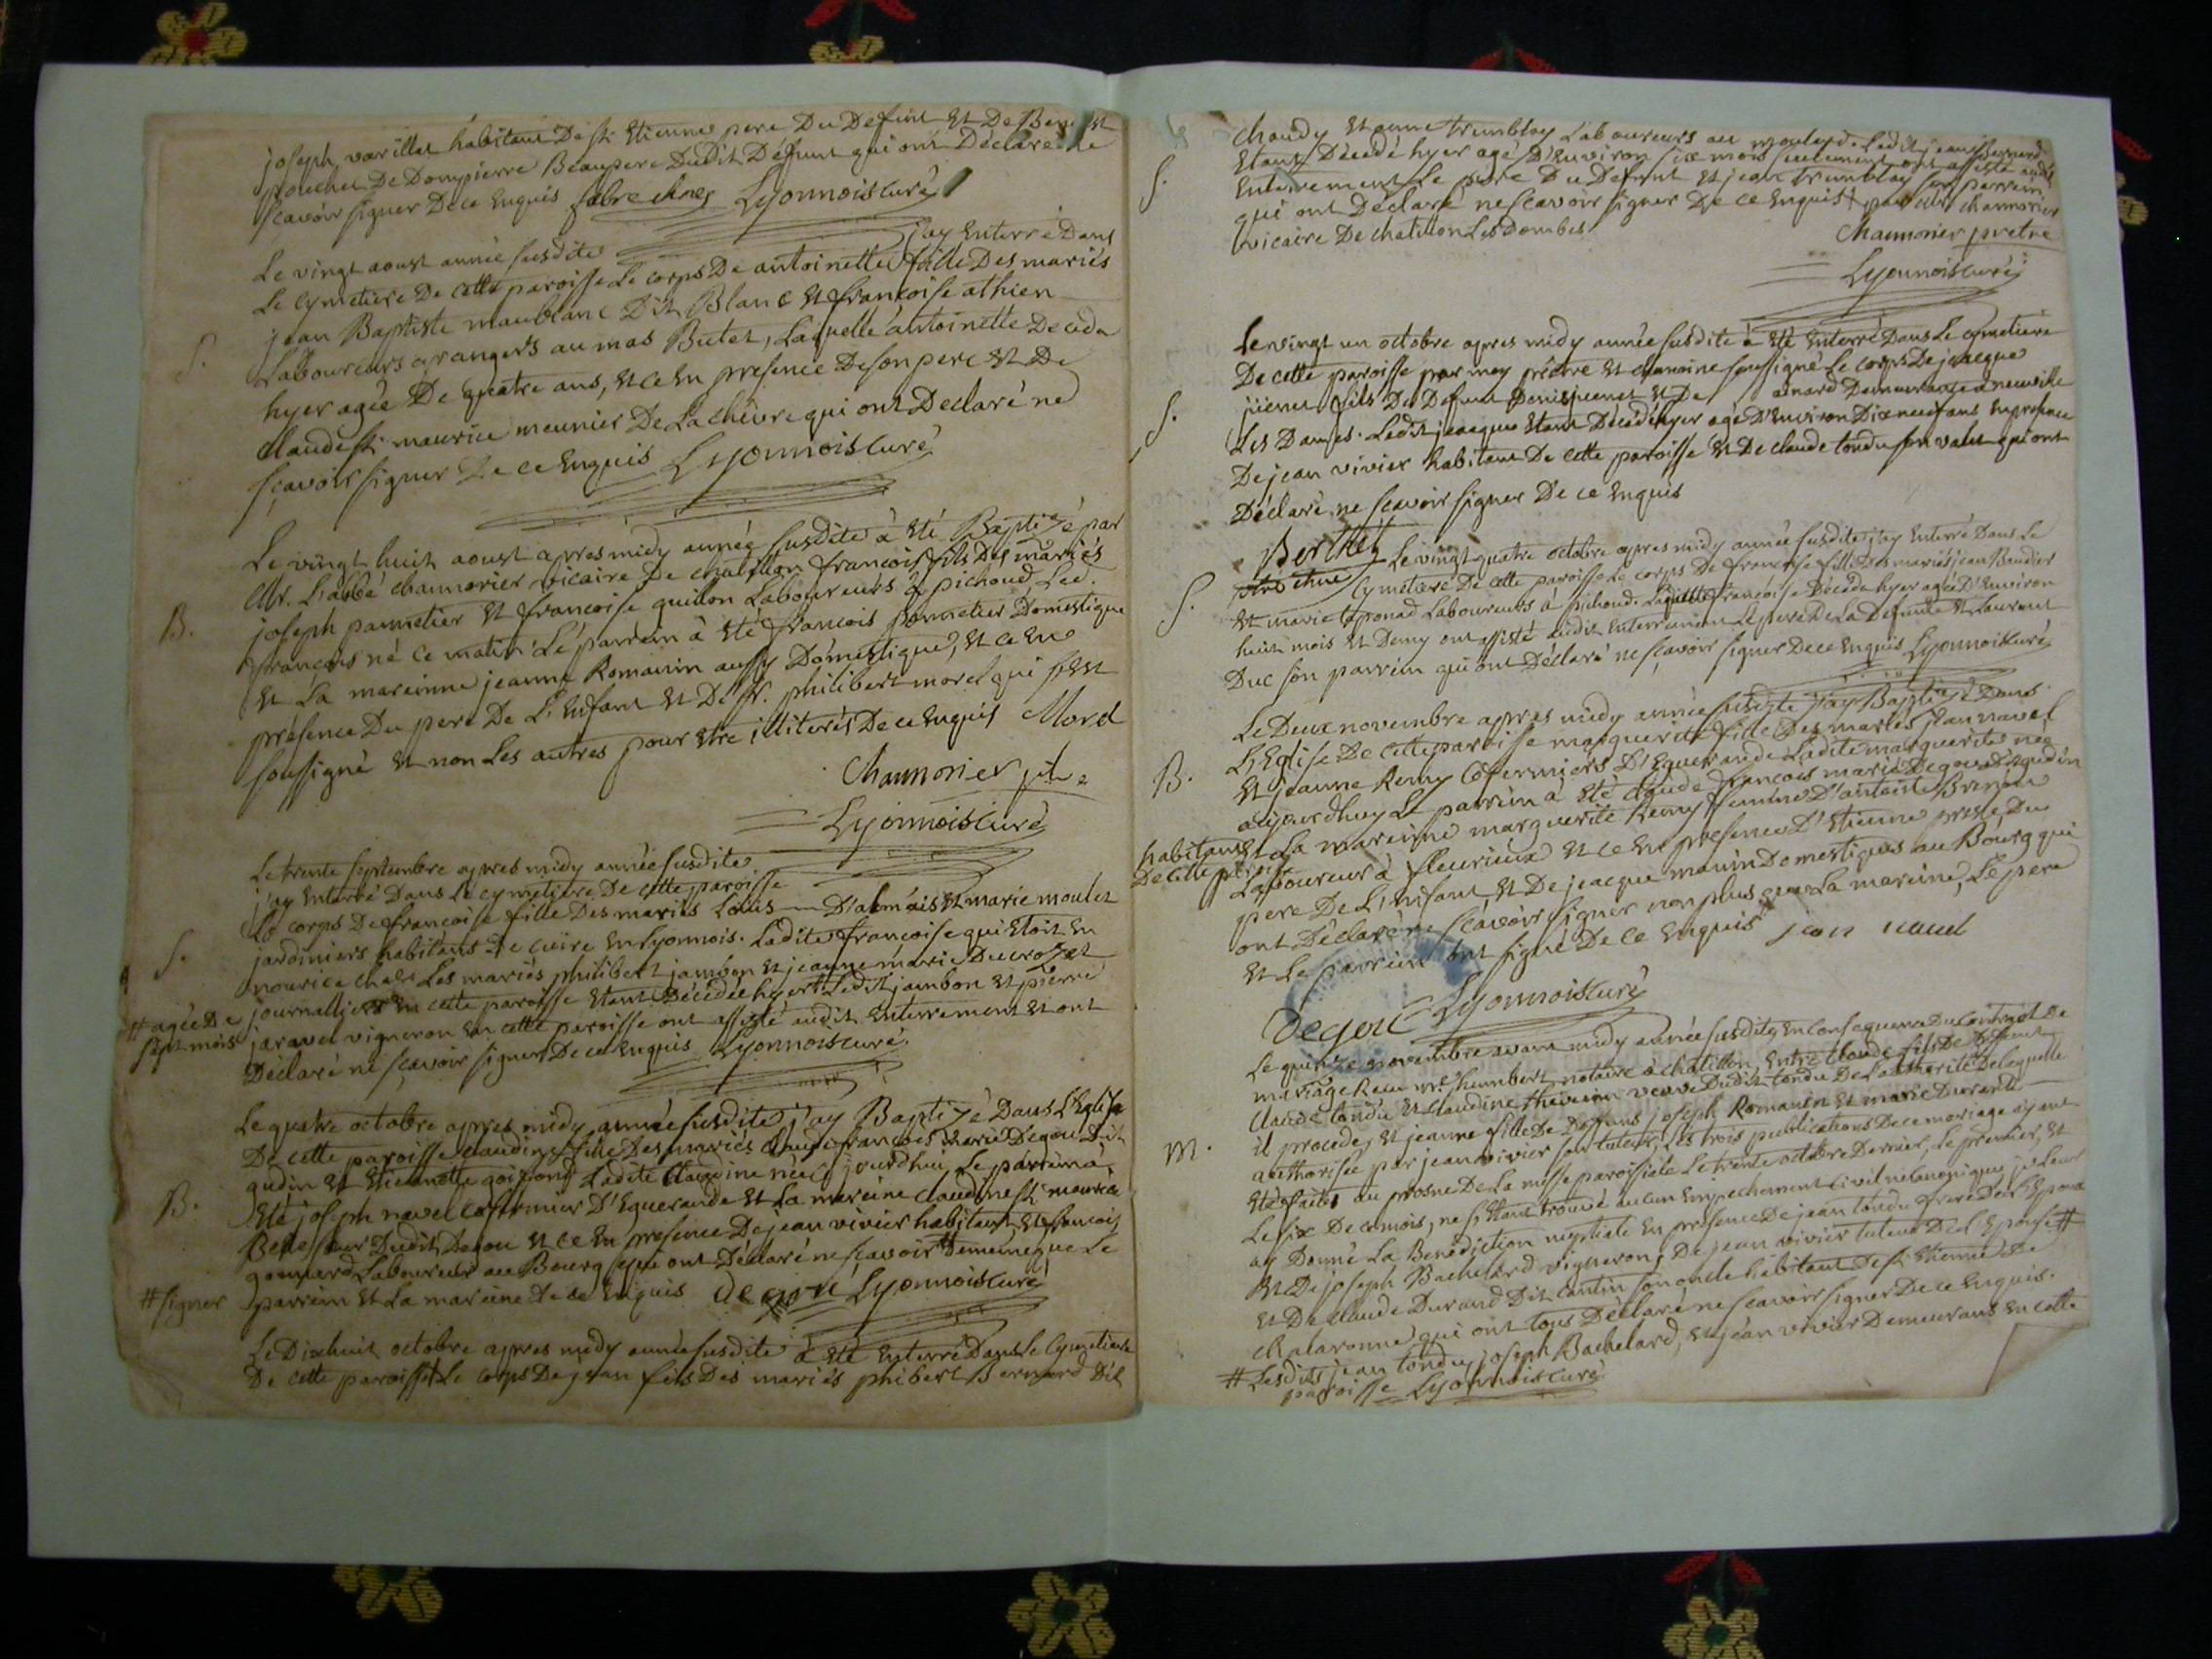 joseph varillat habitant De st Etienne pere Du Defunt Et De Benoist
pouchet De Dompierre Beaupere Dudit Defunt qui ont Déclaré ne
scavoir signer De ce Enquis Lyonnois curé
Le vingt aoust année susdite j'ay Enterré Dans
Le Cymetiere De cette paroisse Le corps De antoinette fille Des mariés
jean Baptiste maublanc Dit Blanc Et françoise athien
S.
Laboureurs grangers au mas Butet, Laquelle antoinette Deceda
hyer agée De quatre ans, Et ce En presence De son pere Et De
Claude st maurice meunier De La chèvre qui ont Déclaré ne
sçavoir signer De ce Enquis Lyonnois curé
Le vingt huit aoust apres midy année susdite à été Baptizé par
Mr. L'abbé chaumorier vicaire De chatillon francois fils Des mariés
B.
joseph pannetier Et francoise guillon Laboureurs à pichoud Led.
françois né ce matin Le parrein à été francois pannetier Domestique
Et La mareinne jeanne Romanin aussy Domestique, Et ce En
présence Du pere De L'Enfant Et De Sr. philibert morel qui s'est
soussigné Et non Les autres pour Etre illiterés De ce Enquis Morel
Chaumorier ptre
Lyonnois curé
Le trente septembre apres midy année susdite
j'ay Enterré Dans Le cymetiere De cette paroisse
Le corps De francoise fille Des mariés Louis D'almais Et marie moulet
S.
jardiniers habitans De cuire En Lyonnois. Ladite francoise qui Etoit En
nourice chez Les mariés philibert jambon Et jeanne marie Ducrozet
# agée De
sept mois
journalliers En cette paroisse Etant Décédée hyer # Ledit jambon Et pierre
jaravel vigneron En cette paroisse ont assisté audit Enterrement Et ont
Déclaré ne sçavoir signer De ce Enquis Lyonnois curé
Le quatre octobre apres midy année susdite j'ay Baptizé Dans L'Eglise
De cette paroisse claudine fille Des mariés claude françois marie Degou Dit
gudin Et Etiennette goiffond Ladite Claudine née aujourdhui Le parrein à
B.
Eté joseph navel cofermier D'Equerande Et La mareine claudine st maurice
Belle sœur Dudit Degou Et ce En presence De jean vivier habitant Et francois
gonnard Laboureur au Bourg qui ont Déclaré ne sçavoir # De meme que Le
# signer
parrein Et La mareine De ce Enquis Degou Lyonnois curé
Le Dixhuit octobre apres midy année susdite à été Enterré Dans Le Cymetiere
De cette paroisse # Le corps De jean fils Des mariés philbert Bernard Dit
chaudy Et anne trembloy Laboureurs au Ledit jean Bernard
Etant Décédé hyer agé D'Environ six mois seulement ont assisté audit
S.
Enterrement Le pere Du Defunt Et jean trembloy son parrein
qui ont Déclaré ne scavoir signer De ce Enquis # par Mr. chaumorier
vicaire De chatillon Les Dombes
Chaumorier pretre
Lyonnois curé
Le vingt un octobre apres midy année susdite à été Enterré Dans Le cymetiere
De cette paroisse par moy prêtre Et chanoine soussigné Le corps De jeacque
juenet fils De Defunt Denis juenet Et De ainard Demeurante à neuville
S.
Les Dames. Ledit jeacque Etant Décédé hyer agé D'Environ Dix neuf ans En presence
De jean vivier habitant De cette paroisse Et De claude tondu son valet qui ont
Déclaré ne scavoir signer De ce Enquis
Berthet
Le vingt quatre octobre apres midy année susdite j'ay Enterré Dans Le
Cymetiere De cette paroisse Le corps De francoise fille Des mariés jean Baudier
S.
Et marie taponad Laboureurs à pichoud. Laquelle francoise Décéda hyer agée D'Environ
huit mois Et Demy ont assisté audit Enterrement Le pere De La Defunte Et Laurent
Duc son parrein qui ont Déclaré ne sçavoir signer De ce Enquis Lyonnois curé
Le Deux novembre apres midy année susdite j'ay Baptizé Dans
L'Eglise De cette paroisse marguerite fille Des mariés jean navel
B.
Et jeanne Remy cofermiers D'Equerande Ladite marguerite née
aujourdhuy Le parrein à été claude francois marie Degou Dit gudin
habitans
De cette paroisse
Et La mareine marguerite Remy femme D'antoine Brevon
Laboureur à fleurieux Et ce En presence D'Etienne Du
pere De L'Enfant Et De jeacque manin Domestiques au Bourg qui
ont Déclaré ne scavoir signer non plus que La mareine, Le pere
Et Le parrein ont signé De ce Enquis jean navel
Degou Lyonnois curé
Le quinze novembre avant midy année susdite, En consequence Du contract De
mariage Recu mre. humbert notaire à chatillon, Entre claude fils De Deffunt
claude tondu Et claudine thevenin veuve Dudit tondu De L'authorité De laquelle
il procede, Et jeanne fille De Deffuns joseph Romanin Et marie Durand
M.
authorisée par jean vivier son tuteur, Les trois publications De ce mariage ayant
Eté faites au prosne De La messe paroissiale Le trente octobre Dernier, Le premier, Et
Le six De ce mois, ne s'Etant trouvé aucun Empechement civil ni canonique je Leur
ay Donné La Bénédiction nuptiale En présence De jean tondu frere De L'Epoux
Et De joseph Bachelard vigneron, De jean vivier tuteur De L'Epouse #
Et De claude Durand Dit cantin son oncle habitant De st Etienne De
chalaronne qui ont tous Déclaré ne scavoir signer De ce Enquis.
# Lesdits jean tondu, joseph Bachelard, Et jean vivier Demeurans En cette
paroisse Lyonnois curé